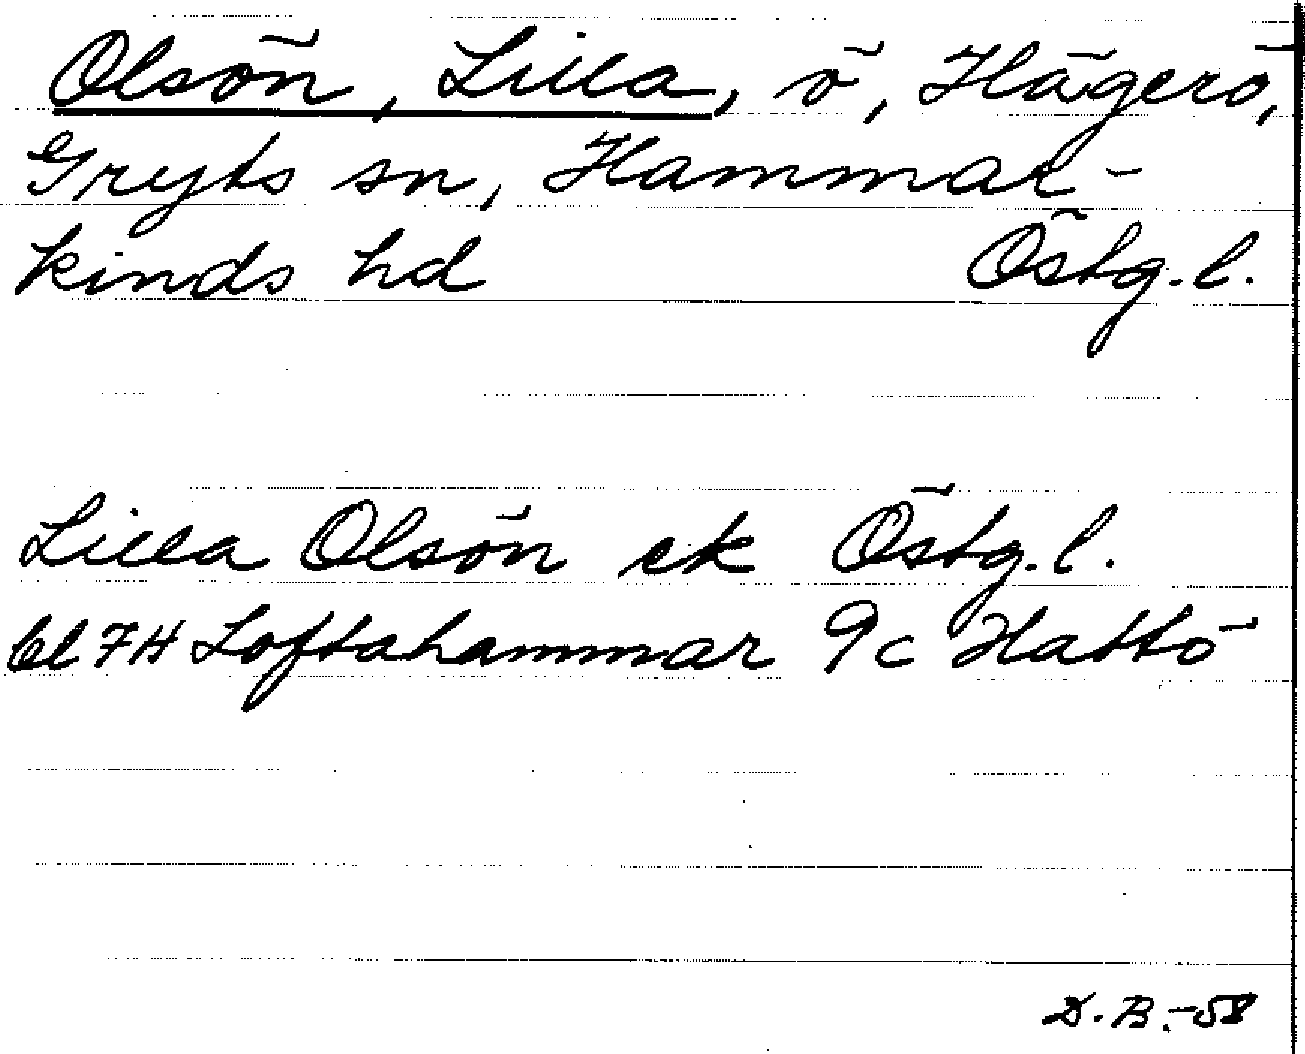 Olsön, Lilla, ö, Hägerö,
Gryts sn, Hammar-
kinds hd Östg. l.
Lilla Olsön ek Östg. l.
bl 7H Loftahammar 9c Hattö
D. B. -58